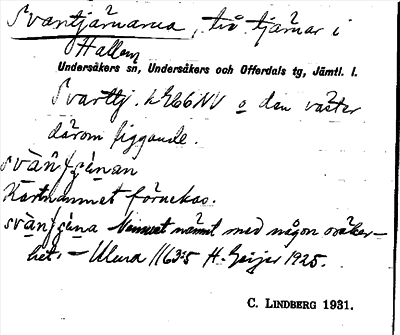 Svantjärnarna, två tjärnar i
Hallen
Undersåkers sn, Undersåkers och Offerdals tg, Jämtl. l.
Svarttj. k 266 NV o den väster
därom liggande.
svằn
Kartnamnet förnekas.
Namnet nämnt med någon osäker-
het. – Ulma 1163:5 H. Geijer 1925.
C. LINDBERG 1931.